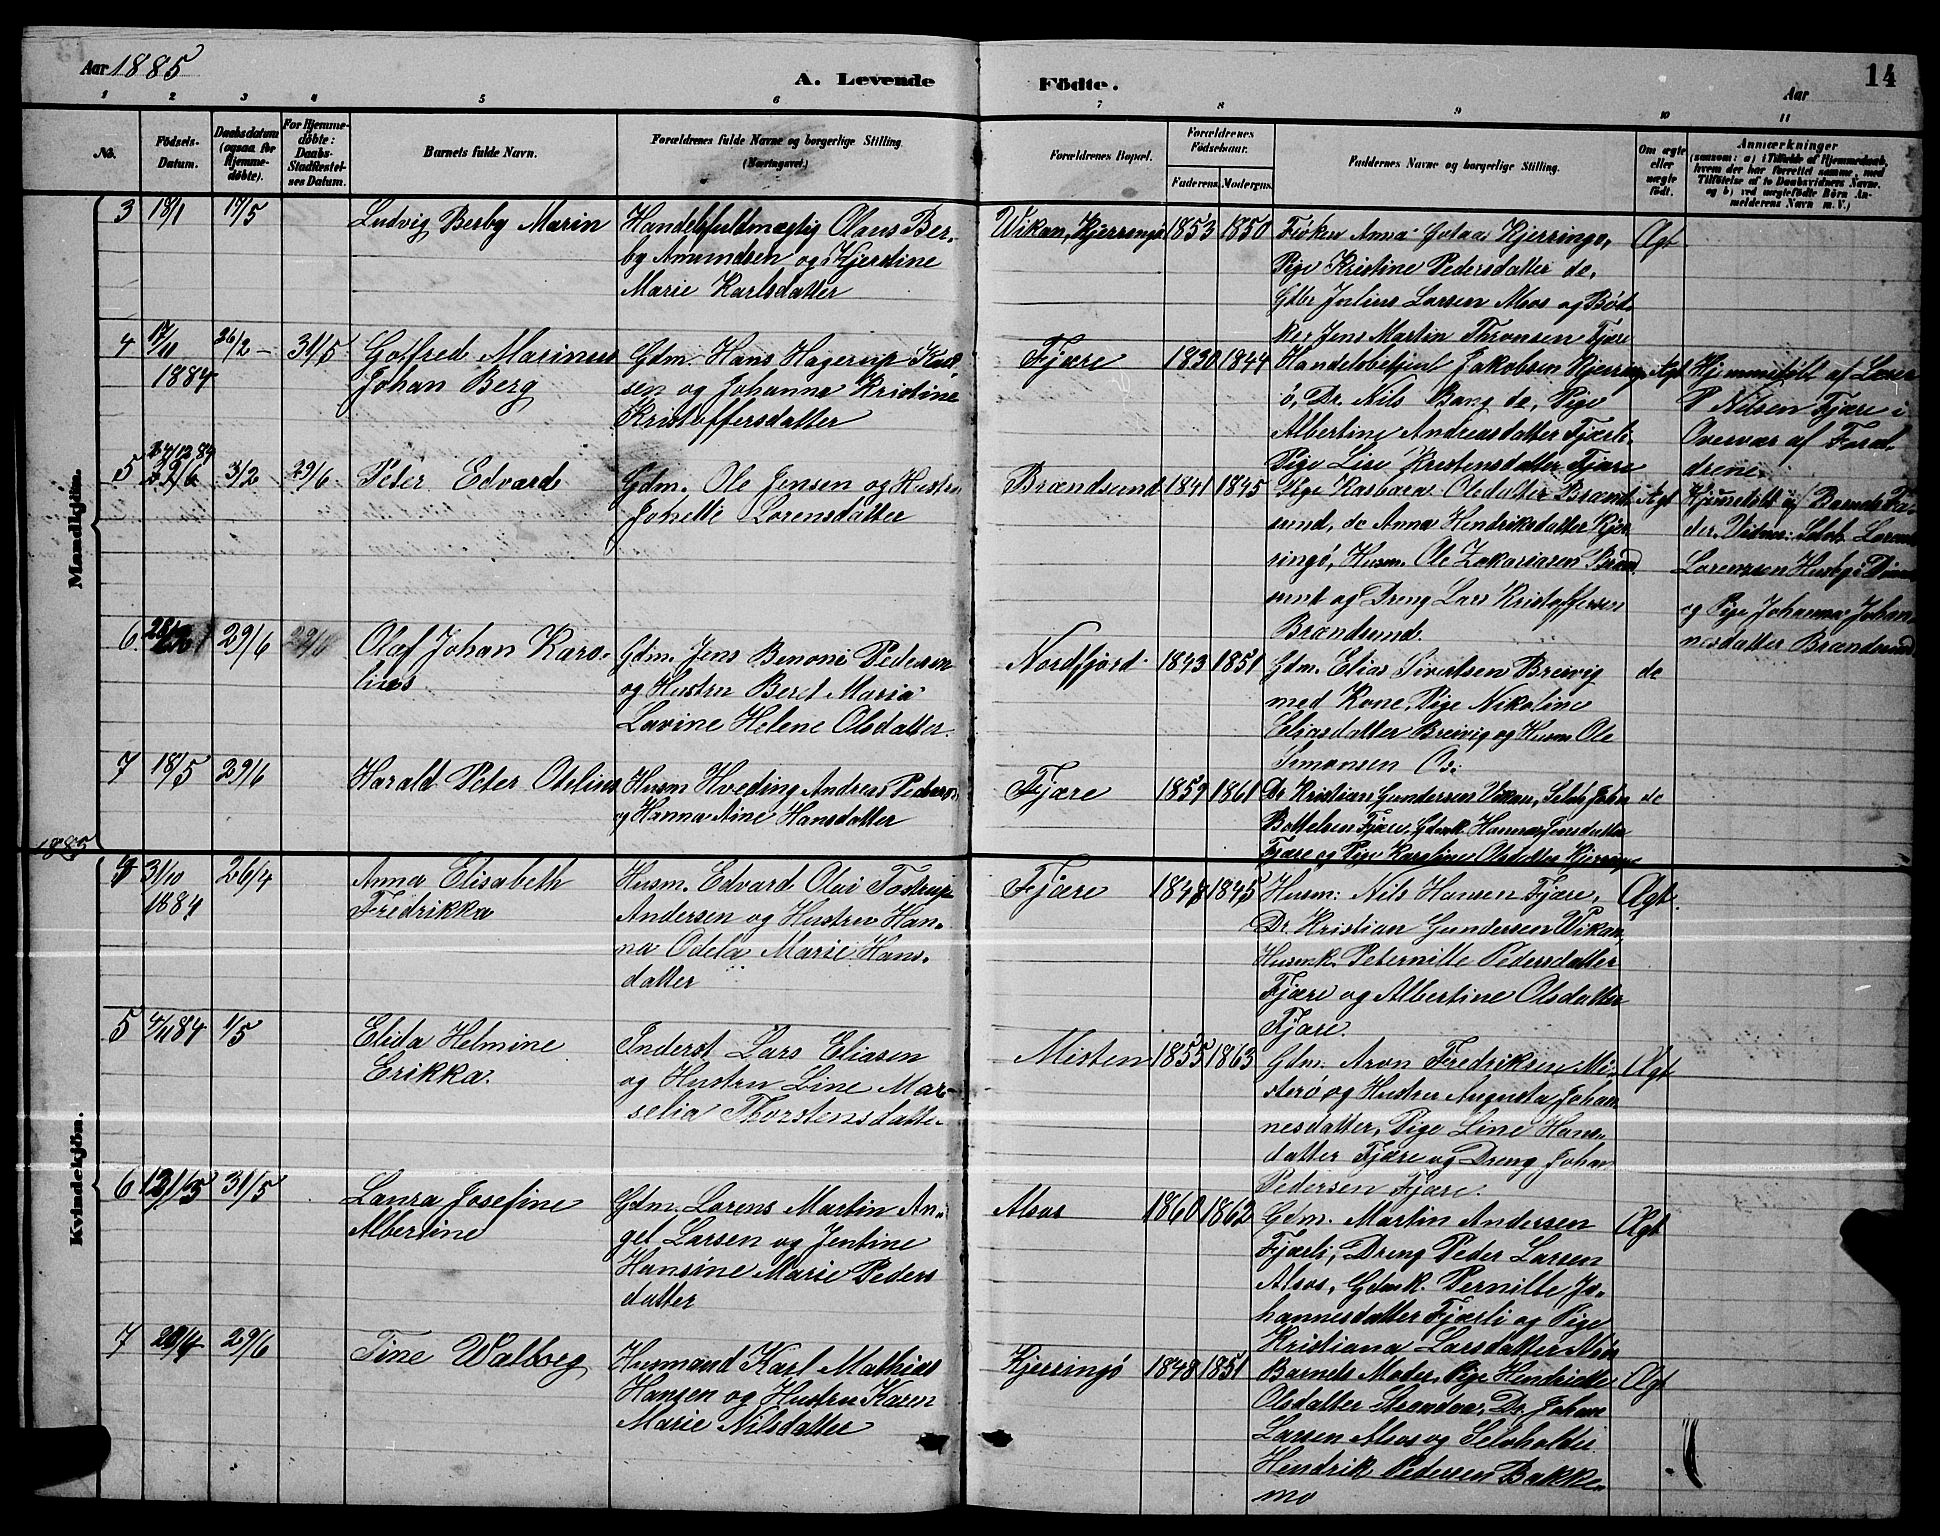 Aar 1885
A. Levende
Födte.
Aar
14
1 2 3 4 5 6 7 8 9 10 11
No.
Födsels-
Datum.
Daabsdatum
(ogsaa for
Hjemme-
döbte).
For Hjemme-
döbte:
Daabs-
Stadfæstel-
ses Datum.
Barnets fulde Navn.
Forældrenes fulde Navne og borgerlige Stilling
(Næringsvei.)
Forældrenes Bopæl.
Forældrenes
Födselsaar.
Faderens. Moderens.
Faddernes Navne og borgerlige Stilling.
Om ægte
eller
uægte
født.
Anmærkninger
(saasom: a) i Tilfælde af Hjemmedaab,
hvem der har forrettet samme, med
Tilföielse af to Daabsvidners Navne,
og b) ved uægtefödte Börn An-
melderens Navn m. V.)
Mandkjön.
3 18/1 17/5
Ludvig Berby Marin
Handelsfuldmægtig Olaus Ber-
by Amundsen og Hjerdine
Marie Karlsdatter
Wikan, Kjerringö 1853 1850
Fröken Anna Kjerringö,
Pige Kristine Pedersdatter de,
Gdbr Julius Larsen Alsos og Böd-
ker Jens Martin Thronsen Fjære
Ægt
4 17/11
1884
26/2 – 31/5
Gotfred Marinus
Johan Berg
Gdm. Hans Hagerup
sen og Johanna Kristine
Kristoffersdatter
Fjære 1830 1844
Handelsbetjent Jakobsen Kjerring-
ö, Dr. Nils Bang de, Pige
Albertine Andreasdatter Fjærli.
Pige Lise Kristensdatter Fjære
Ægt
Hjemmedöbt af
P Nilsen Fjære i
Overvær af Foræl-
drene.
5 24/12 84
29/6
3/2 29/6
Peter Edvard
Gdm. Ole Jensen og Hustru
Jonette Lorensdatter
Brændsund 1841 1845
Pige Barbara Olsdatter Brænd-
sund, de Anna Hendriksdatter Kjer-
ringö, Husm. Ole Zakariasen Brænd-
sund og Dreng Lars Kristoffersen
Brændsund.
Ægt
Hjemmedöbt af Barnets Fa-
der. Vidner: Selvh. Lorents
Lorentzen Husby i Dönnes
og Pige Johanna Johan-
nesdatter Brændsund.
6 29/6 29/6
Olaf Johan Karo-
lius
Gdm. Jens Benoni Pedersen
og Hustru Beret Maria
Lavine Helene Olsdatter.
Nordfjord 1843 1851
Gdm. Elias Sivertsen Breivig
med Kone, Pige Nikoline
Eliasdatter Breivig og Husm Ole
Simonsen Os.
de
7 18/5 29/6
Harald Peter Otelius
Husm Hveding Andreas Pedersen
og Hanna Aine Hansdatter
Fjære 1859 1861
Dr Kristian Gundersen Vikan, Selvh John
Bottelsen Fjære, Gdmk. Hanna Jensdatter
Fjære og Pige Karoline Olsdatter Kjerringö
de
1885
Kvindekjön.
4 3/10
1884
26/4
Anna Elisabeth
Fredrikka
Husm. Edvard Olai Tostrup
Andersen og Hustru Han-
na Odela Marie Hans-
datter
Fjære 1848 1845
Husm: Nils Hansen Fjære,
Dr. Kristian Gundersen Wikan,
Husmk. Peternille Pedersdatter
Fjære og Albertine Olsdatter
Fjære.
Ægt.
5 4/11 84 1/5
Elida Helmine
Erikka.
Inderst Lars Eliasen
og Hustru Line Mar-
selia Thorstensdatter
Misten 1855 1863
Gdm. Aron Fredriksen Mi-
sterö og Hustru Augusta Johan-
nesdatter, Pige Line Hans-
datter Fjære og Dreng Johan
Pedersen Fjære.
Ægt
6 12/5 31/5
Laura Josefine
Albertine
Gdm. Lorens Martin An-
gel Larsen og Jentine
Hansine Marie Peders
datter
Alsos 1860 1862
Gdm. Martin Andersen
Fjærli, Dreng Peder Larsen
Alsos, Gdmk. Pernille Jo-
hannesdatter Fjærli og Pige
Kristiana Larsdatter Alsos
Ægt
7 20/4 29/6
Tine Walborg
Husmand Karl Mathias
Hansen og Hustru Karen
Marie Nilsdatter
Kjerringö 1848 1851
Barnets Moder, Pige Hendrikke
Olsdatter Strandvæ, Dr. Johan
Larsen Alsos og Selvholder
Hendrik Pedersen Bakke-
mo
Ægt